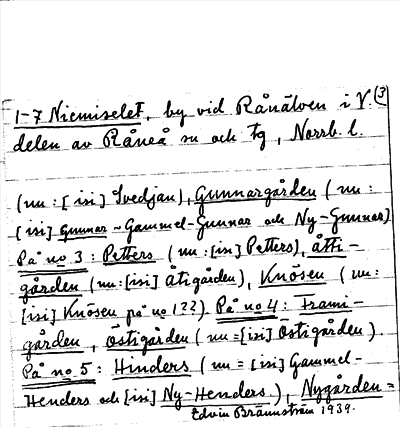 (3)
1-7 Niemiselet, by vid Råneälven i V.
delen av Råneå sn och tg, Norrb. l.
(nu: [isi] Svedjan), Gunnargården (nu:
[isi] Gunnar ~ Gammel-Gunnar och Ny-Gunnar)
På no 3: Petters (nu: [isi] Petters), åtti-
gården (nu: [isi] Åtigården), Knösen (nu:
[isi] Knösen på no 122). På no 4: Frami-
gården, Östigården (nu = [isi] Östigården).
På no 5: Hinders (nu = [isi] Gammel-
Henders och [isi] Ny-Henders), Nygården =
Edvin Brännström 1939.